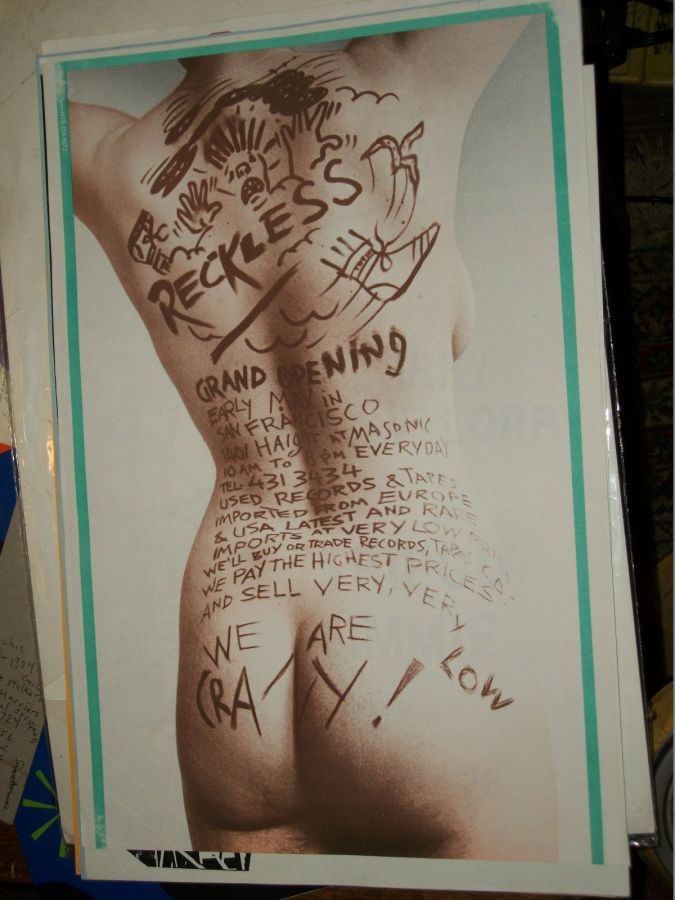 RECKLESS
GRAND OPENING
EARLY MAY IN
SAN FRANCISCO
1401 HAIGHT AT MASONIC
10 AM TO PM EVERYDAY
TEL. 431 3434
USED RECORDS & TAPES
IMPORTED FROM EUROPE
& USA LATEST AND RARE
IMPORTS AT VERY LOW
WE'LL BUY OR TRADE RECORDS,
WE PAY THE HIGHEST PRICES
AND SELL VERY, VERY
LOW
WE ARE
CRAZY!